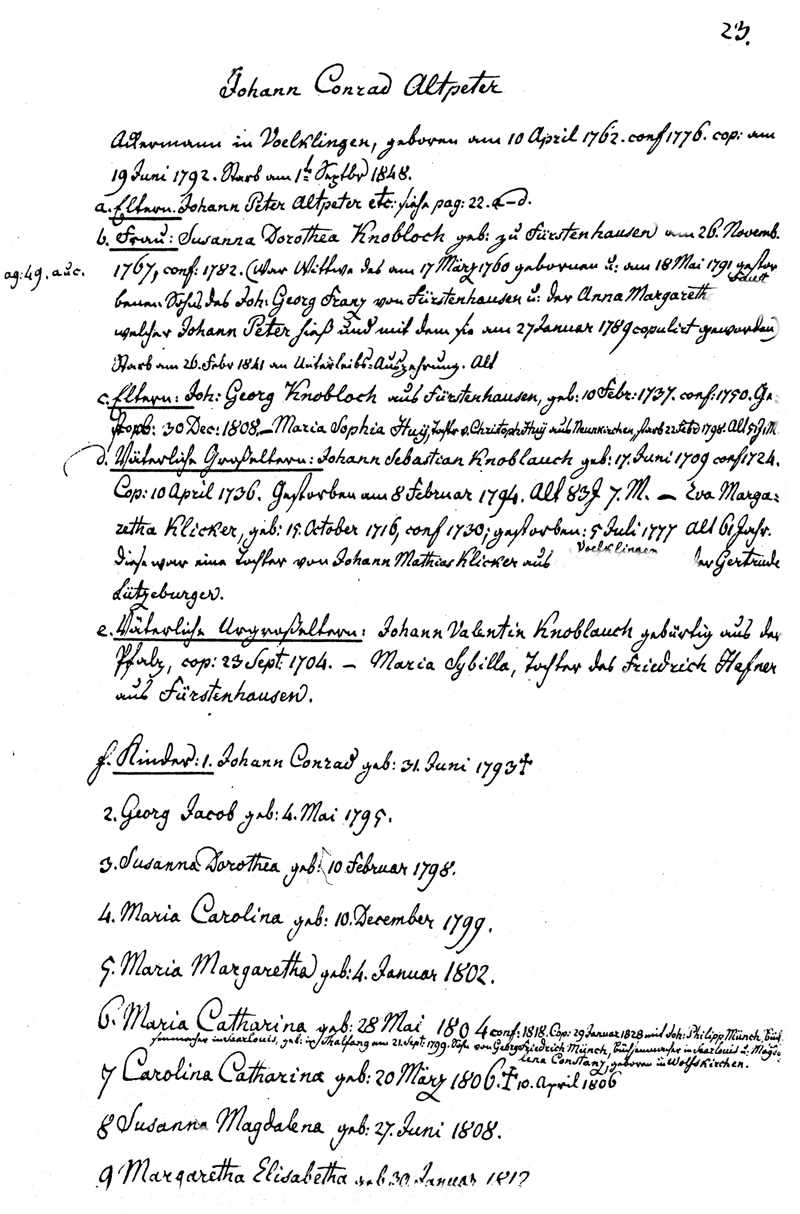 23.
Johann Conrad Altpeter
Ackermann in Voelklingen, geboren am 10 April 1762. conf 1776. cop: am
19 Juni 1792. Starb am 1t Septbr 1848.
a. Eltern. Johann Peter Altpeter etc: siehe pag: 22. a–d.
b. Frau: Susanna Dorothea Knobloch geb: zu Fürstenhausen am 26. Novemb.
ag: 49. a u c.
1767, conf: 1782. (War Wittwe des am 17 März 1760 gebornen u: am 18 Mai 1791 gestor
benen Sohns des Joh: Georg Franz von Fürstenhausen u: der Anna Margareth
welcher Johann Peter hieß und mit dem sie am 27 Januar 1789 copulirt geworden)
Starb am 26. Febr 1841 an Unterleibs-Auszehrung. Alt
c. Eltern: Joh: Georg Knobloch aus Fürstenhausen, geb: 10 Febr: 1737. conf: 1750. Ge-
storb: 30 Dec: 1808. – Maria Sophia Huy, Tochter v. Christoph Huy aus starb 22 Febr 1798. Alt
d. Väterliche Großeltern: Johann Sebastian Knoblauch geb: 17. Juni 1709 conf 1724.
Cop: 10 April 1736. Gestorben am 8 Februar 1794. Alt 83 J 7. M. – Eva Marga-
retha Klicker, geb: 15. October 1716, conf 1730; gestorben: 5 Juli 1777 alt 61 Jahr.
Diese war eine Tochter von Johann Mathias Klicker aus Voelklingen der Gertrude
Lützeburger.
e. Väterliche Urgroßeltern: Johann Valentin Knoblauch gebürtig aus der
Pfalz, cop: 23 Sept: 1704. – Maria Sybilla, Tochter des Friedrich Hafner
aus Fürstenhausen.
f. Kinder: 1. Johann Conrad geb: 31. Juni 1793 †
2. Georg Jacob geb: 4. Mai 1795.
3. Susanna Dorothea geb: 10 Februar 1798.
4. Maria Carolina geb: 10. December 1799.
5. Maria Margaretha geb: 4. Januar 1802.
6. Maria Catharina geb: 28 Mai 1804 conf: 1818. Cop: 29 Januar 1828 mit Joh: Philipp Münch, Büch
senmacher in Saarlouis, geb: in am 21. Sept: 1799. Sohn von Georg Friedrich Münch, Büchsenmacher in Saarlouis u. Magda
lena Constanz, geboren in Wolfskirchen.
7 Carolina Catharina geb: 20 März 1806. † 10. April 1806
8 Susanna Magdalena geb: 27. Juni 1808.
9 Margaretha Elisabetha geb 30 Januar 1812